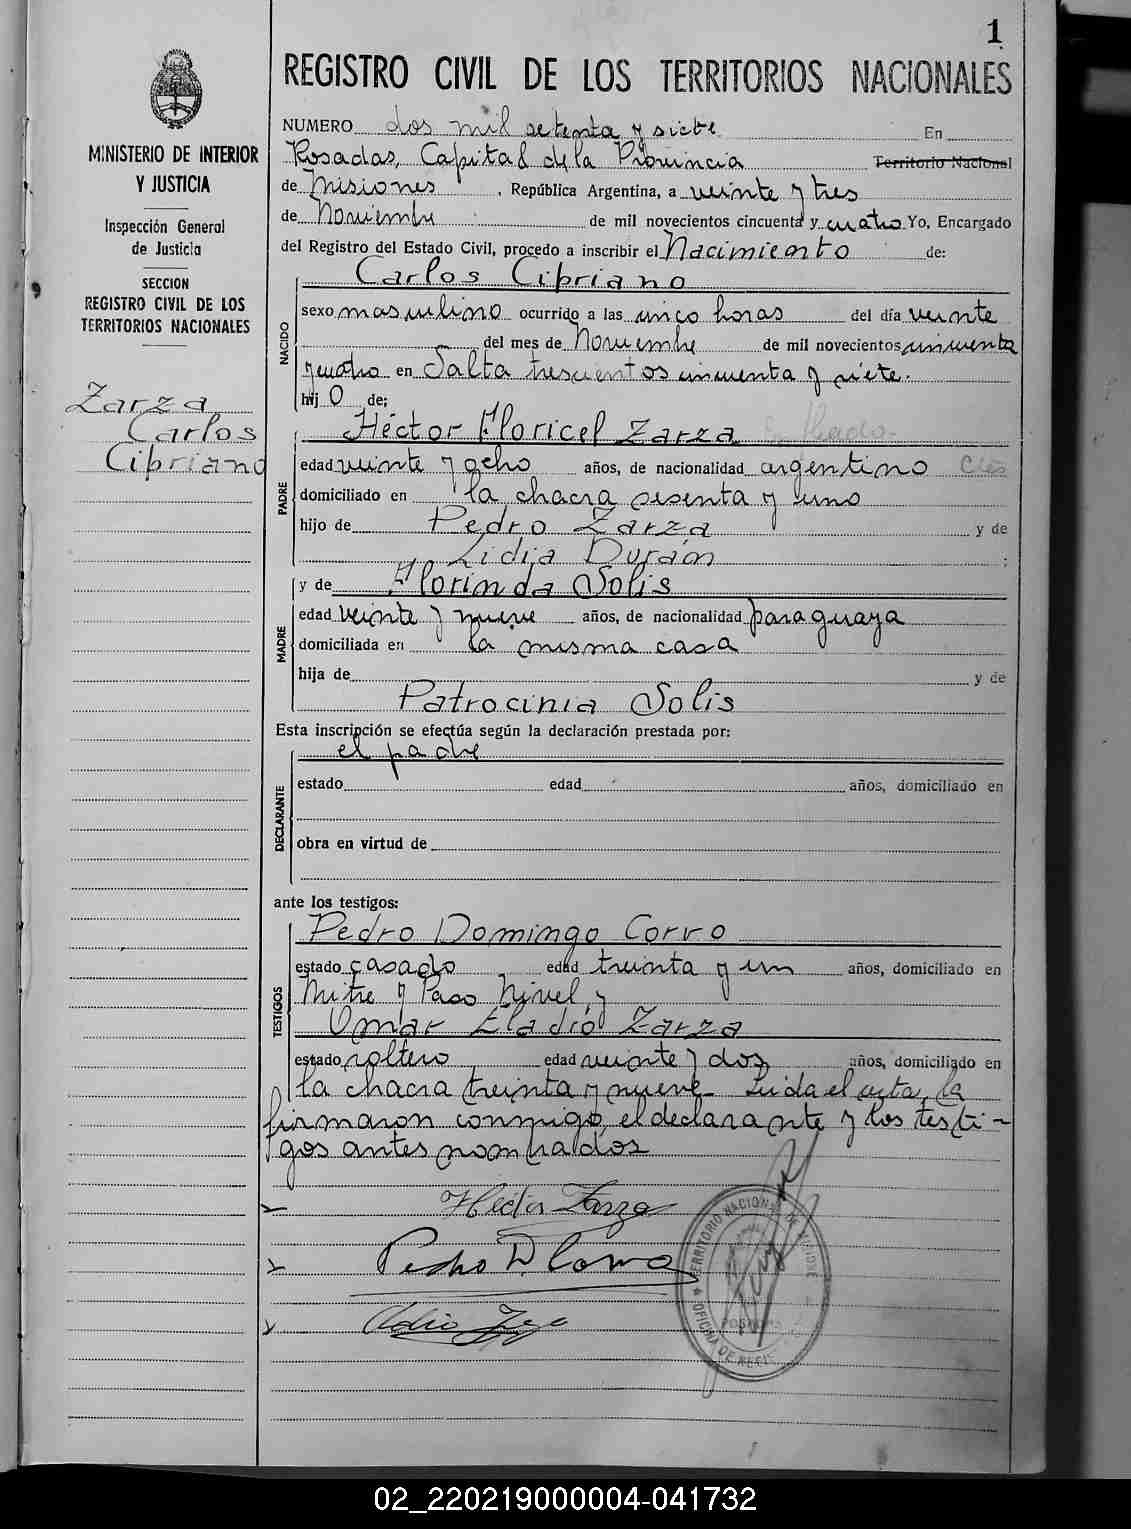 1
REGISTRO CIVIL DE LOS TERRITORIOS NACIONALES
MINISTERIO DE INTERIOR
Y JUSTICIA
Inspección General
de Justicia
SECCION
REGISTRO CIVIL DE LOS
TERRITORIOS NACIONALES
Zarza
Carlos
Cipriano
NUMERO dos mil setenta y siete En
Posadas, Capital de la Provincia Territorio Nacional
de Misiones, República Argentina, a veinte y tres
de Noviembre de mil novecientos cincuenta y cuatro Yo, Encargado
del Registro del Estado Civil, procedo a inscribir el Nacimiento de:
Carlos Cipriano
NACIDO
sexo masculino ocurrido a las cinco horas del día veinte
del mes de Noviembre de mil novecientos cincuenta
y cuatro en Salta trescientos cincuenta y siete.
hijo de;
Héctor Floricel Zarza
PADRE
edad veinte y ocho años, de nacionalidad argentino
domiciliado en la chacra sesenta y uno
hijo de Pedro Zarza y de
Lidia Durán ;
y de Florinda Solis
MADRE
edad veinte y nueve años, de nacionalidad paraguaya
domiciliada en la misma casa
hija de y de
Patrocinia Solis
Esta inscripción se efectúa según la declaración prestada por:
el padre
DECLARANTE
estado edad años, domiciliado en
obra en virtud de
ante los testigos:
Pedro Domingo Corro
TESTIGOS
estado casado edad treinta y un años, domiciliado en
Mitre y Paso Nivel y
Omar Eladio Zarza
estado soltero edad veinte y dos años, domiciliado en
la chacra treinta y nueve- Leida el acta, la
firmaron conmigo, el declarante y los testi-
gos antes nombrados
Héctor Zarza
Pedro D. Corro
TERRITORIO NACIONAL DE MISIONES
POSADAS
OFICINA DE REGIS
02_220219000004-041732